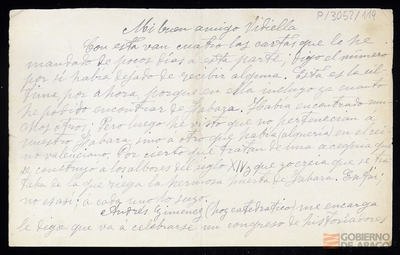 P/3052/119
Mi buen amigo Vidiella
Con esta van cuatro las cartas que le he
mandado de pocos días a esta parte, digo el número
por si había dejado de recibir alguna. Esta es la úl-
tima por ahora porque en ella incluyo ya cuanto
he podido encontrar de Fabara. Había encontrado
otros; Pero luego he visto que no pertenecían a
nuestro Fabara sino a otro que había en el rei-
no valenciano. Por cierto que tratan de una acequia que
se construyó a los albores del siglo XIV y que yo creía que se tra-
taba de la que riega la hermosa huerta de Fabara. En fin:
no es así: a cada uno lo suyo.
Andrés Gimenez (hoy catedrático) me encarga
le diga que va a celebrarse un congreso de historiadores
GOBIERNO
DE ARAGON